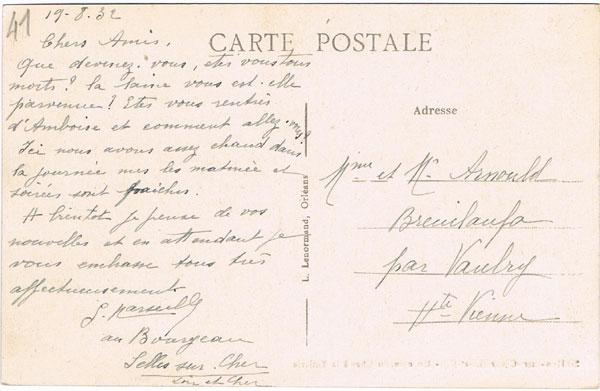 41
19-8-32
CARTE POSTALE
Chers Amis,
Que devenez-vous, etes vous tous
morts? la laine vous est-elle
parvenue? Etes vous rentrés
d'Amboise et comment allez-vous?
Ici nous avons assez chaud dans
la journée mes les matinée et
soirées sont fraiches.
A bientot je pense de vos
nouvelles et en attendant je
vous embrasse tous très
affectueusement
au Bourgeau
Selles sur Cher
Loir et Cher
L. Lenormand, Orléans
Adresse
Mme et M. Arnould
Breuilaufa
par Vaulry
Hte Vienne